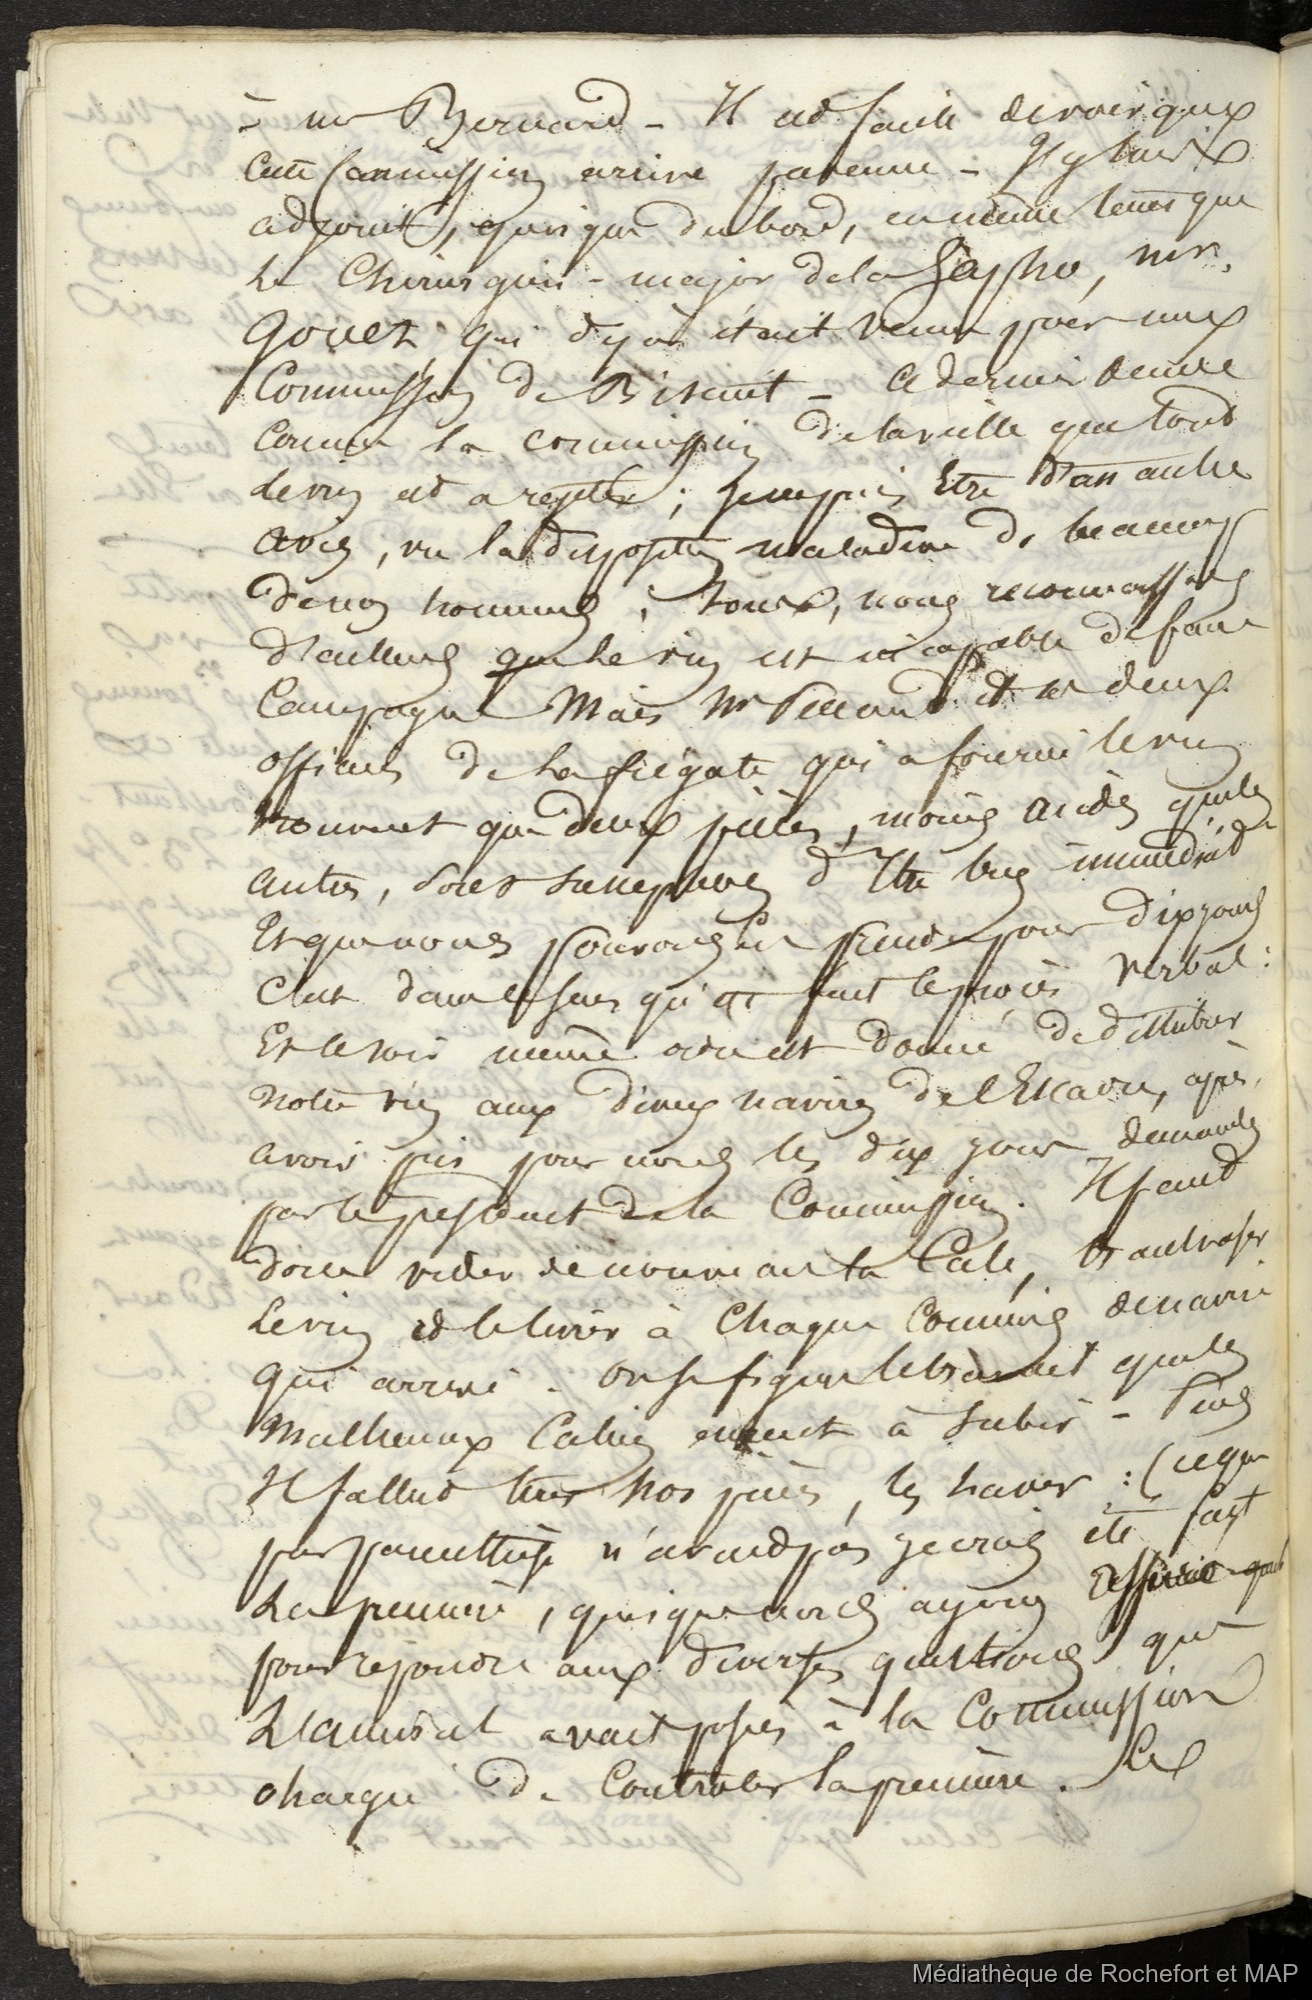 à mr Bernard - Il est facile de voir que
cette Commission arrive prévenue - J'y suis
adjoint, quoique du bord, en même tems que
le Chirurgien-major de la Sapho, mr.
Gouet qui déjà était venu pour une
Commission de Biscuit - Ce dernier demeure
comme la commission de la veille que tout
le vin est à rejetter ; je ne puis être d'an autre
avis, vu la disposition maladive de beaucoup
de nos hommes ; Tous, nous reconnaissons
d'ailleurs que le vin est incapable de faire
Campagne Mais Mr et les deux
officiers de la frégate qui a fourni le vin
trouvent que deux pièces, moins acides que les
autres, sont susceptibles d'être bues immédiat
Et que nous pouvons les prendre pour dix jours
C'est dans ce sens qu'est fait le procès verbal :
Et le soir même ordre est donné de distribuer
notre vin aux divers navires de l'Escadre, après
avoir pris pour nous les dix jours demandés
par le président de la Commission. Il faut
donc vider de nouveau la Cale, transvaser
le vin et le livrer à chaque Commis de navire
qui arrive - on se figure le bruit que les
malheureux Caliers eurent à subir - Puis
Il fallut tirer nos pièces, les laver : (ce que
par parenthèse n'avait pas je crois été fait
La première, quoique nous ayons
pour répondre aux diverses questions que
L'amiral avait posées à la Commission
chargée de Contrôler la première. Le
Médiathèque de Rochefort et MAP